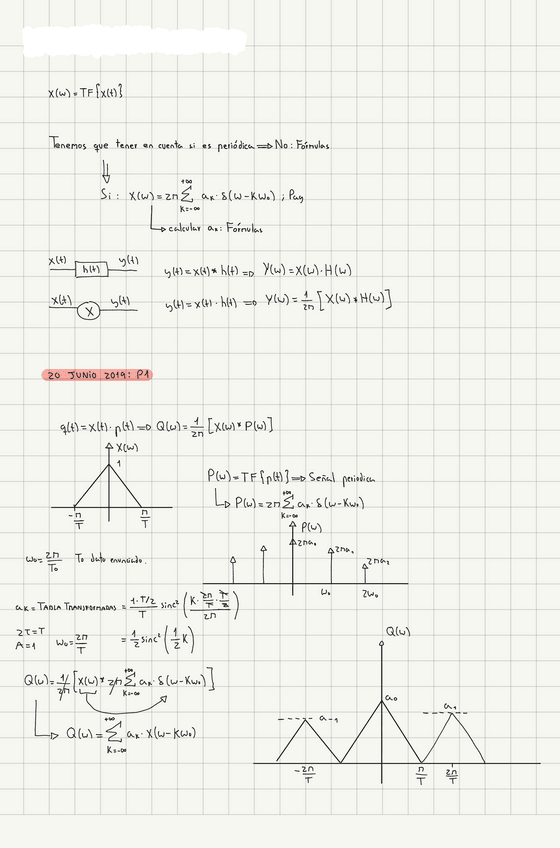 X(ω) = TF{x(t)}
Tenemos que tener en cuenta si es periódica ⟹ No: Fórmulas
Si: X(ω) = 2π Σ_{K=-∞}^{+∞} a_K · δ(ω-Kω₀) ; Pag
calcular a_K: Fórmulas
x(t) h(t) y(t) y(t) = x(t) * h(t) ⟹ Y(ω) = X(ω) · H(ω)
x(t) X y(t) y(t) = x(t) · h(t) ⟹ Y(ω) = 1/2π [X(ω) * H(ω)]
20 JUNIO 2019: P1
q(t) = x(t) · p(t) ⟹ Q(ω) = 1/2π [X(ω) * P(ω)]
X(ω)
1
-π/T π/T
P(ω) = TF{p(t)} ⟹ Señal periódica
P(ω) = 2π Σ_{K=-∞}^{+∞} a_K · δ(ω-Kω₀)
P(ω)
2πa₀ 2πa₁ 2πa₂
ω₀ 2ω₀
ω₀ = 2π/T₀ T₀ dato enunciado.
a_K = TABLA TRANSFORMADAS = 1·T/2 / T sinc² (K · 2π/T · T/2 / 2π)
2τ = T
A = 1 ω₀ = 2π/T = 1/2 sinc² (1/2 K)
Q(ω) = 1/2π [X(ω) * 2π Σ_{K=-∞}^{+∞} a_K · δ(ω-Kω₀)]
Q(ω) = Σ_{K=-∞}^{+∞} a_K · X(ω-Kω₀)
Q(ω)
a₋₁ a₀ a₁
-2π/T π/T 2π/T